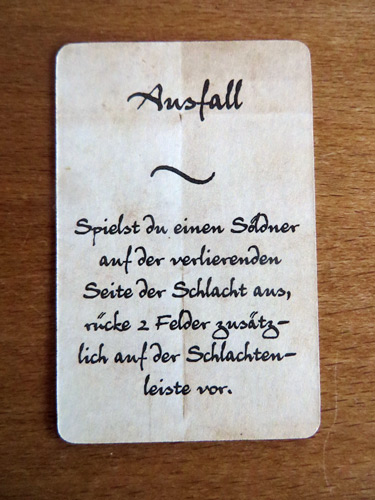 Ausfall
Spielst du einen Söldner
auf der verlierenden
Seite der Schlacht aus,
rücke 2 Felder zusätz-
lich auf der Schlachten-
leiste vor.